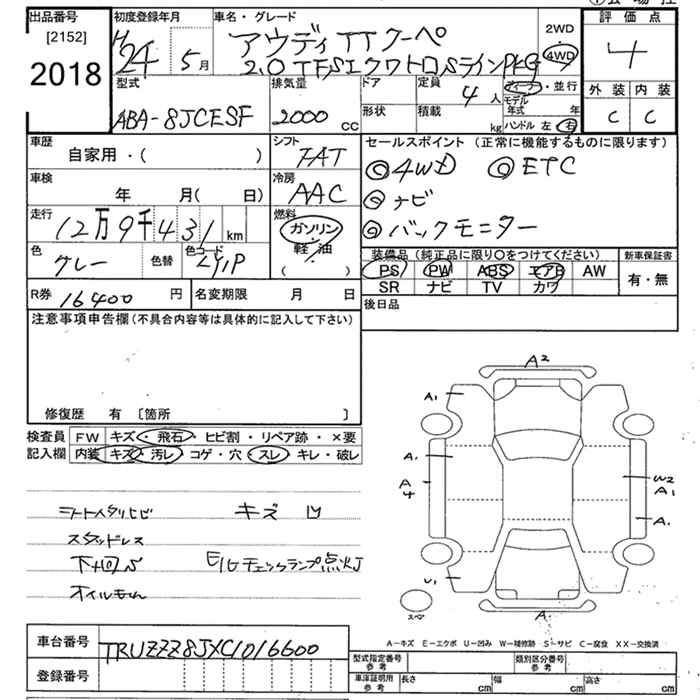 出品番号
[2152]
2018
初度登録年月
H24 5月
車名・グレード
アウディTTクーペ
2.0TFSIクワトロSラインPKG
2WD
4WD
評価点
4
型式
ABA-8JCESF
排気量
2000 cc
ドア
形状
定員
4人
積載
kg
ディーラー・並行
モデル年式 年
ハンドル 左 右
外装 内装
C C
車歴
自家用・( )
シフト
7AT
セールスポイント (正常に機能するものに限ります)
◎4WD ◎ETC
◎ナビ
◎バックモニター
車検
年 月( 日)
冷房
AAC
走行
12万9千431km
燃料
ガソリン
軽・油
( )
色
グレー
色替
色コード
LY1P
装備品 (純正品に限り○をつけてください)
PS PW ABS エアB AW
SR ナビ TV カワ
新車保証書
有・無
R券 16400円
名変期限 月 日
後日品
注意事項申告欄(不具合内容等は具体的に記入して下さい)
修復歴 有 〔箇所 〕
検査員記入欄
FW キズ・飛石・ヒビ割・リペア跡・×要
内装 キズ・汚レ・コゲ・穴・スレ・キレ・破レ
シートスタリヒビ キズ 凹
スタッドレス
下廻りS E/Gチェックランプ点灯
オイルもれ
A2
A1
A1
A4
W2
A1
A1
U1
A
スペア
A-キズ E-エクボ U-凹み W-補修跡 S-サビ C-腐食 XX-交換済
車台番号
TRUZZZ8JXC1016600
登録番号
型式指定番号 参考
類別区分番号 参考
車庫証明用 参考
長さ cm
幅 cm
高さ cm